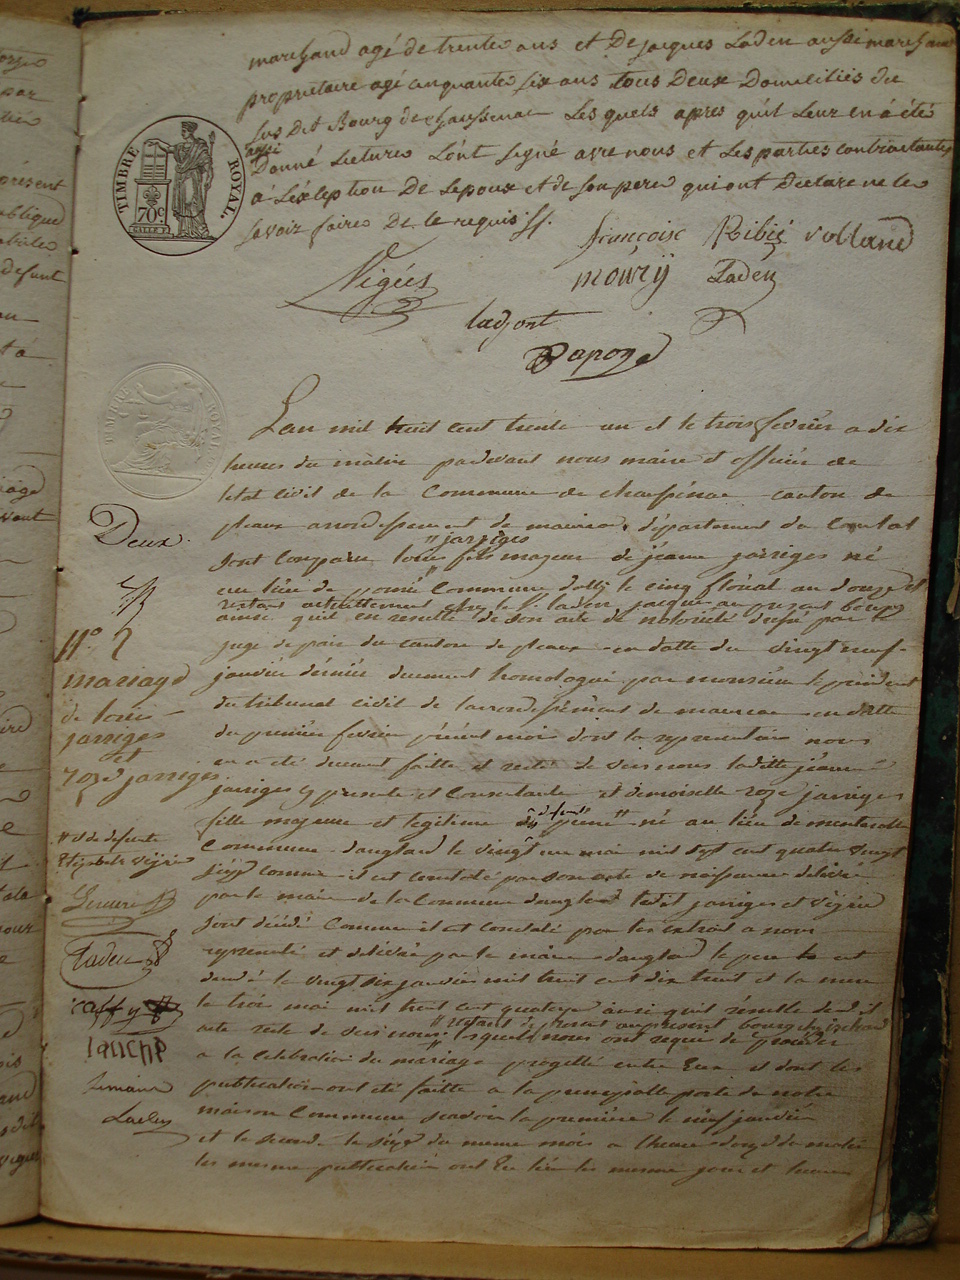 marchand agé de trente ans et De jacques Laden aussi marchand
proprietaire agé cinquante six ans tous Deux Domeciliés du
Sus Dit Bourg de chaussenac Lesquels apres qu'il Leur en à été
Donné Lecture L'ont Signé avec nous et Les parties contractantes
a L'éxception De Lepoux et de Son pere qui ont Declaré ne le
Savoir faire De ce requis
TIMBRE ROYAL.
70c
françoise Ribié volland
Vigiés mouriÿ Laden
lafont
Papon
TIMBRE ROYAL
Lan mil huit cent trente un et le trois fevrier a dix
heures du matin pardevant nous maire et officier de
letat civil de la Commune de chaussenac canton de
pleaux arrondissement de mauriac, département du Cantal
Sont Comparu louis jarriges fils majeur de jeanne jarriges né
au lieu de Commune dally le cinq floréal an douze et
restant actuellement chez le Sr laden jacques au present bourg
ainsi quil en resulte de son acte de notorieté dressé par le
juge de paix du canton de pleaux en datte du vingt neuf
janvier dernier duement homologué par monsieur le président
du tribunal civil de larrondissement de mauriac en datte
du premier fevrier présent mois dont la représentation nous
en a été duement faitte et resté de vers nous laditte jeanne
jarriges y presente et Consentante et demoiselle roze jarriges
fille majeure et legitime né au lieu de
Commune danglard le vingt un mai mil sept cent quatre vingt
Seize comme il est constaté par son acte de naissance délivré
par le maire de la Commune danglard ledit jarriges et véÿrié
Sont décédé Comme il est constaté par les extrait a nous
représenté et délivré par le maire danglard le pere est
décédé le vingt six janvier mil huit cent dix huit et la mere
le trois mai mil huit cent quatorze ainsi quil résulte dudit
acte resté de vers nous lesquels nous ont requis de procéder
restant au present bourg
a la célébration du mariage projetté entre Eux et dont les
publication ont été faitte a la principalle porte de notre
maison Commune scavoir la première le neuf janvier
et le Second le Seize du meme mois a lheure donze du matin
les meme publication ont Eu lieu les meme jour et heure
Deux
N.o 2
mariage
de louis
jarriges
et
roze jarriges
et de defunte
Elizabete véÿrié
Laden
raffy
lanche